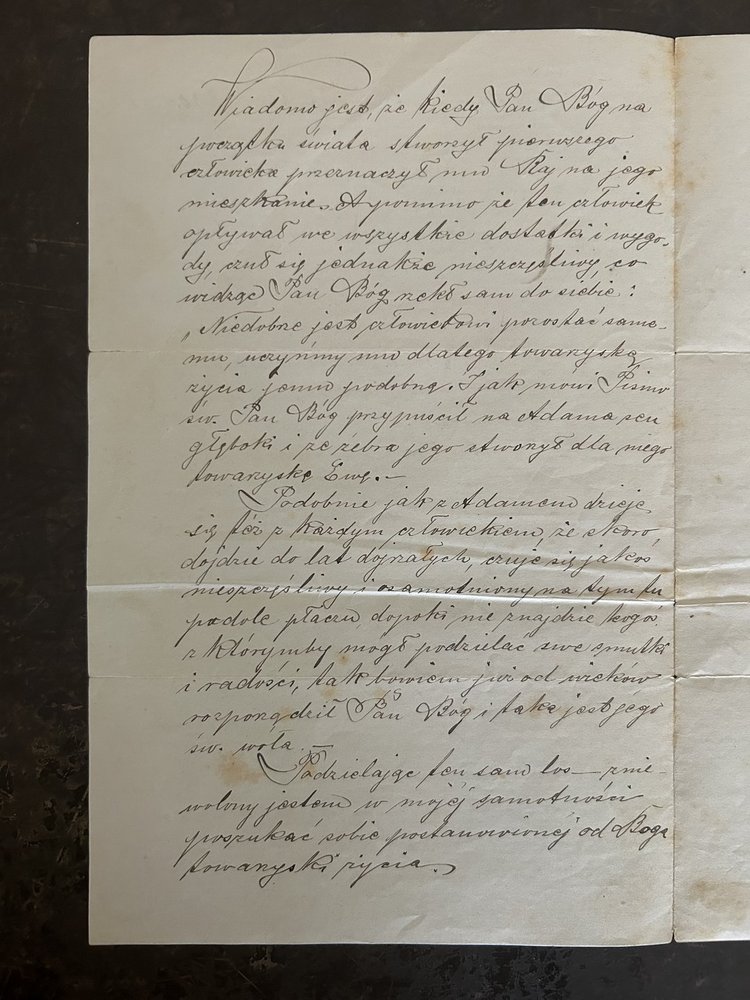 Wiadomo jest, że kiedy Pan Bóg na
początku świata stworzył pierwszego
człowieka przeznaczył mu Raj na jego
mieszkanie. A pomimo że ten człowiek
opływał we wszystkie dostatki i wygo-
dy, czuł się jednakże nieszczęśliwy, co
widząc Pan Bóg rzekł sam do siebie:
„Niedobrze jest człowiekowi pozostać same-
mu, uczyńmy mu dlatego towarzyszkę
życia jemu podobną. I jak mówi Pismo
św. Pan Bóg przypuścił na Adama sen
głęboki i ze żebra jego stworzył dla niego
towarzyszkę Ewę. —
Podobnie jak z Adamem dzieje
się też z każdym człowiekiem, że skoro
dojdzie do lat dojrzałych, czuje się jakoś
nieszczęśliwy i osamotniony na tym tu
padole płaczu dopoki nie znajdzie kogoś
z którymby mogł podzielać swe smutki
i radości, tak bowiem już od wieków
rozporządził Pan Bóg i taka jest jego
św. wola. —
Podzielając ten sam los — znie-
wolony jestem w mojéj samotności
poszukać sobie postanowionéj od Boga
towarzyszki życia.